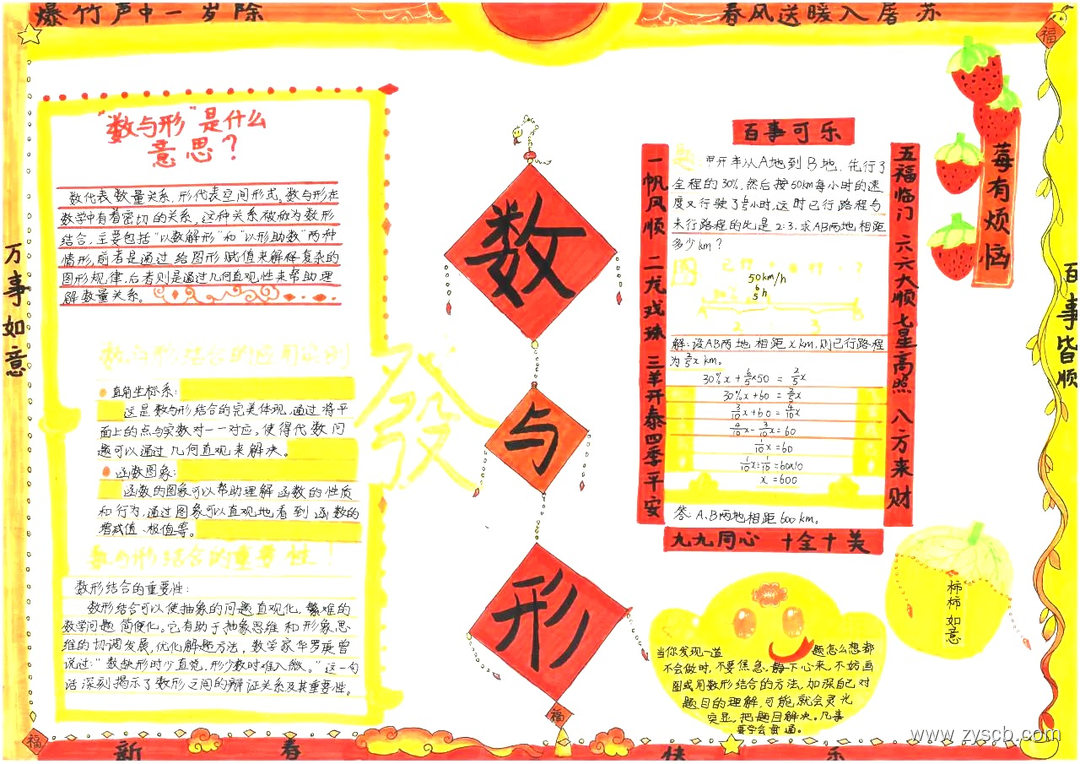 爆竹声中一岁除
春风送暖入屠苏
福
万事如意
百事皆顺
"数与形"是什么
意思?
数代表数量关系,形代表空间形式,数与形在
数学中有着密切的关系,这种关系被称为数形
结合,主要包括"以数解形"和"以形助数"两种
情形,前者是通过给图形赋值来解释复杂的
图形规律,后者则是通过几何直观性来帮助理
解数量关系。
数与形结合的应用实例
直角坐标系:
这是数与形结合的完美体现,通过将平
面上的点与实数对一一对应,使得代数问
题可以通过几何直观来解决。
函数图象:
函数的图象可以帮助理解函数的性质
和行为,通过图象可以直观地看到函数的
增减值、极值等。
数与形结合的重要性!
数形结合的重要性:
数形结合可以使抽象的问题直观化,繁难的
数学问题简便化。它有助于抽象思维和形象思
维的协调发展,优化解题方法,数学家华罗庚曾
说过:"数缺形时少直觉,形少数时难入微。"这一句
话深刻揭示了数形之间的辩证关系及其重要性。
發
数
与
形
福
百事可乐
一帆风顺 二龙戏珠 三羊开泰四季平安
五福临门 六六大顺七星高照 八方来财
九九同心 十全十美
题 甲开车从A地到B地,先行了
全程的30%,然后按50km每小时的速
度又行驶了6/5小时,这时已行路程与
未行路程的比是2:3.求AB两地相距
多少km?
图
50km/h
6/5h
A
B
2
3
解:设AB两地相距xkm,则已行路程
为2/5x km。
30%x+6/5×50=2/5x
30%x+60=2/5x
3/10x+60=4/10x
4/10x-3/10x=60
1/10x=60
1/10x÷1/10=60×10
x=600
答:A、B两地相距600km。
莓有烦恼
柿柿如意
当你发现一道
题怎么想都
不会做时,不要焦急,静下心来,不妨画
图或用数形结合的方法,加深自己对
题目的理解,可能就会灵光
突显,把题目解决。凡事
要学会变通。
福
新春快乐
www.zyscb.com